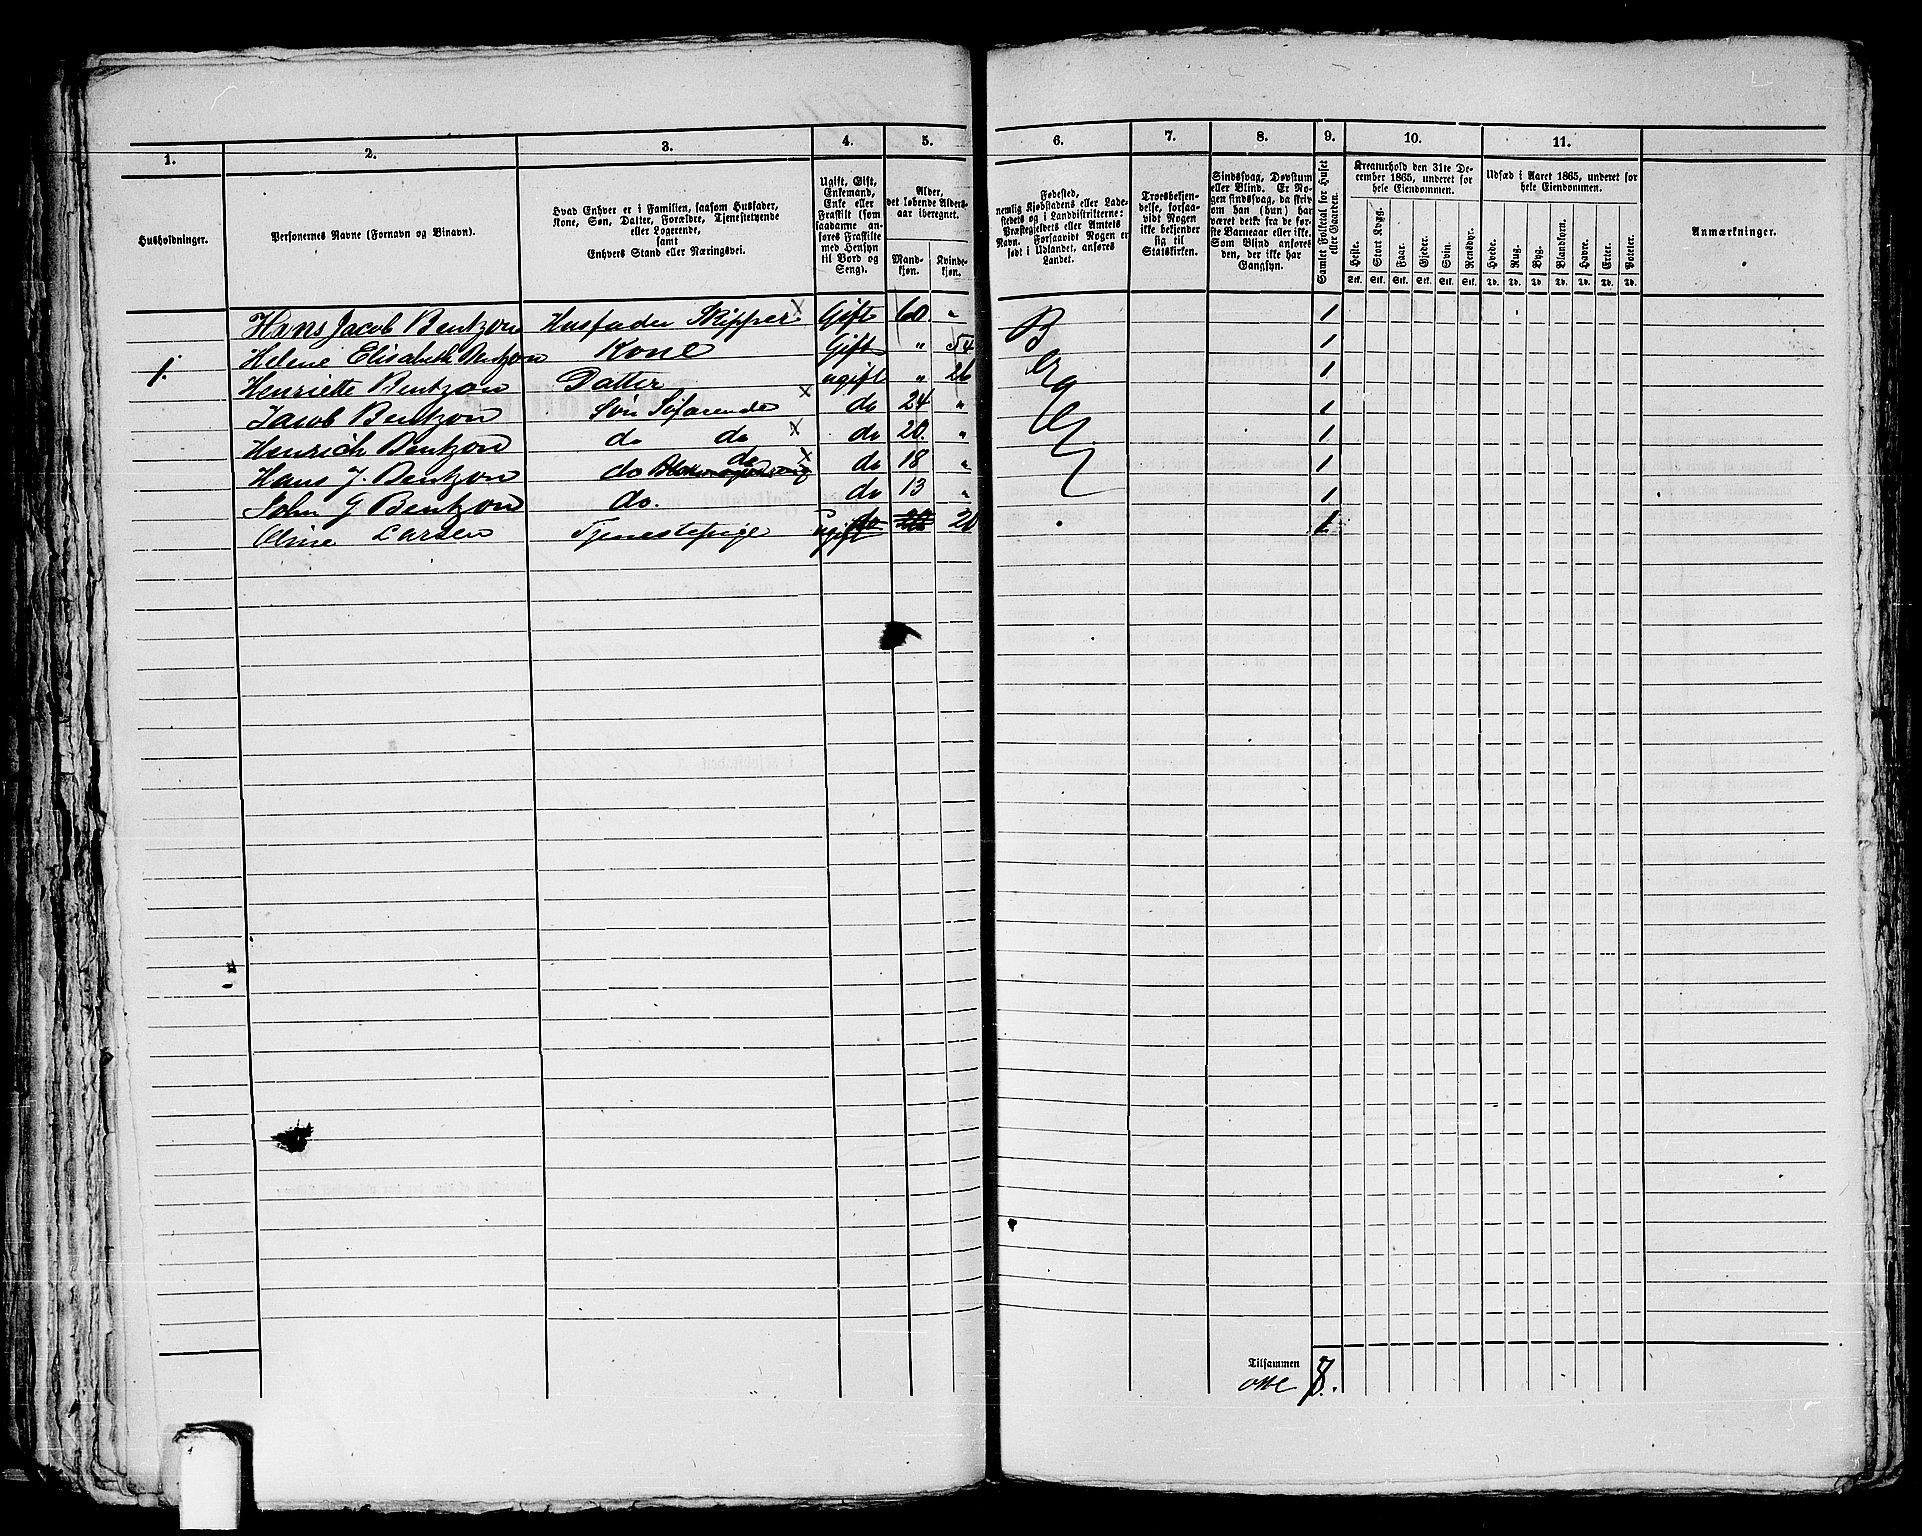 1.
2.
3.
4.
5.
6.
7.
8.
9.
10.
11.
Husholdninger.
Personernes Navne (Fornavn og Binavn).
Hvad Enhver er i Familien, saasom Husfader,
Kone, Søn, Datter, Forældre, Tjenestetyende
eller Logerende,
samt
Enhvers Stand eller Næringsvei.
Ugift, Gift,
Enkemand,
Enke eller
Fraskilt (som
saadanne an-
føres Fraskilte
med Hensyn
til Bord og
Seng).
Alder,
det løbende Alders-
aar iberegnet.
Mand-
kjøn.
Kvinde-
kjøn.
Fødested,
nemlig Kjøbstadens eller Lade-
stedets og i Landdistrikterne:
Præstegjeldets eller Amtets
Navn. Forsaavidt Nogen er
født i Udlandet, anføres
Landet.
Troesbekjen-
delse, forsaa-
vidt Nogen
ikke bekjender
sig til
Statskirken.
Sindssvag, Døvstum
eller Blind. Er No-
gen sindssvag, da skriv
om han (hun) har
været dette fra de før-
ste Barneaar eller ikke.
Som Blind anføres
den, der ikke har
Gangsyn.
Samlet Folketal for Huset
eller Gaarden.
Kreaturhold den 31te De-
cember 1865, underet for
hele Eiendommen.
Heste.
Stort Kvæg.
Faar.
Gjeder.
Svin.
Rensdyr.
Stk. Stk. Stk. Stk. Stk. Stk.
Udsæd i Aaret 1865, underet for
hele Eiendommen.
Hvede.
Rug.
Byg.
Blandkorn.
Havre.
Erter.
Poteter.
Td. Td. Td. Td. Td. Td. Td.
Anmærkninger.
Hans Jacob Bentzon Husfader Skipper x Gift 60. " B 1
Helene Elisabeth Bentzon Kone Gift " 54 1
1. Henriette Bentzon Datter ugift " 26 1
Jacob Bentzon Søn Søfarende x do 24 " 1
Henrich Bentzon do do x do 20. " 1
Hans J. Bentzon do do x do 18 " 1
John G Bentzon do. do 13 " 1
Oline Larsen Tjenestepige ugift do 20 1
Tilsammen
otte 8.